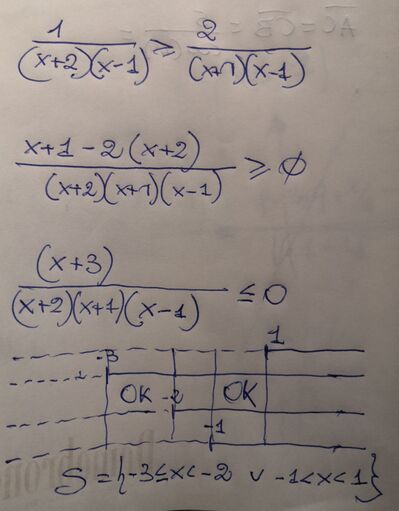 1/((x+2)(x-1)) ≥ 2/((x+1)(x-1))
(x+1-2(x+2))/((x+2)(x+1)(x-1)) ≥ 0
(x+3)/((x+2)(x+1)(x-1)) ≤ 0
1
-3
OK -2 OK
-1
S = {-3≤x<-2 ∨ -1<x<1}